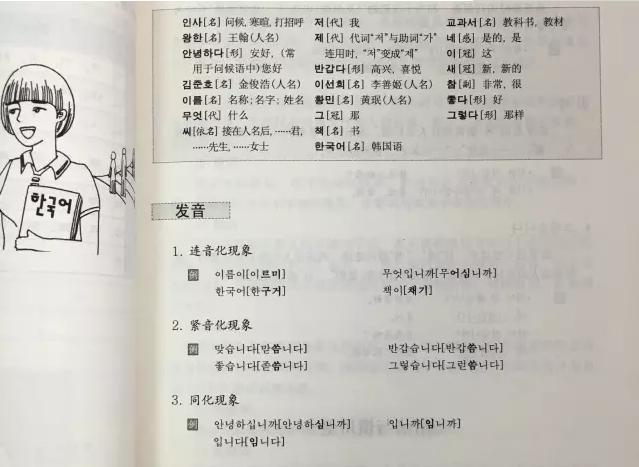 인사[名] 问候,寒暄,打招呼
왕한[名] 王翰(人名)
안녕하다[形] 安好,(常
用于问候语中)您好
김준호[名] 金俊浩(人名)
이름[名] 名称;名字;姓名
무엇[代] 什么
씨[依名] 接在人名后,……君,
……先生,……女士
저[代] 我
제[代] 代词“저”与助词“가”
连用时,“저”变成“제”
반갑다[形] 高兴,喜悦
이선희[名] 李善姬(人名)
황민[名] 黄珉(人名)
그[冠] 那
책[名] 书
한국어[名] 韩国语
교과서[名] 教科书,教材
네[感] 是的,是
이[冠] 这
새[冠] 新,新的
참[副] 非常,很
좋다[形] 好
그렇다[形] 那样
한국어
发音
1. 连音化现象
例 이름이[이르미] 무엇입니까[무어심니까]
한국어[한구거] 책이[채기]
2. 紧音化现象
例 맞습니다[맏씀니다] 반갑습니다[반갑씀니다]
좋습니다[존씀니다] 그렇습니다[그런씀니다]
3. 同化现象
例 안녕하십니까[안녕하심니까] 입니까[임니까]
입니다[임니다]